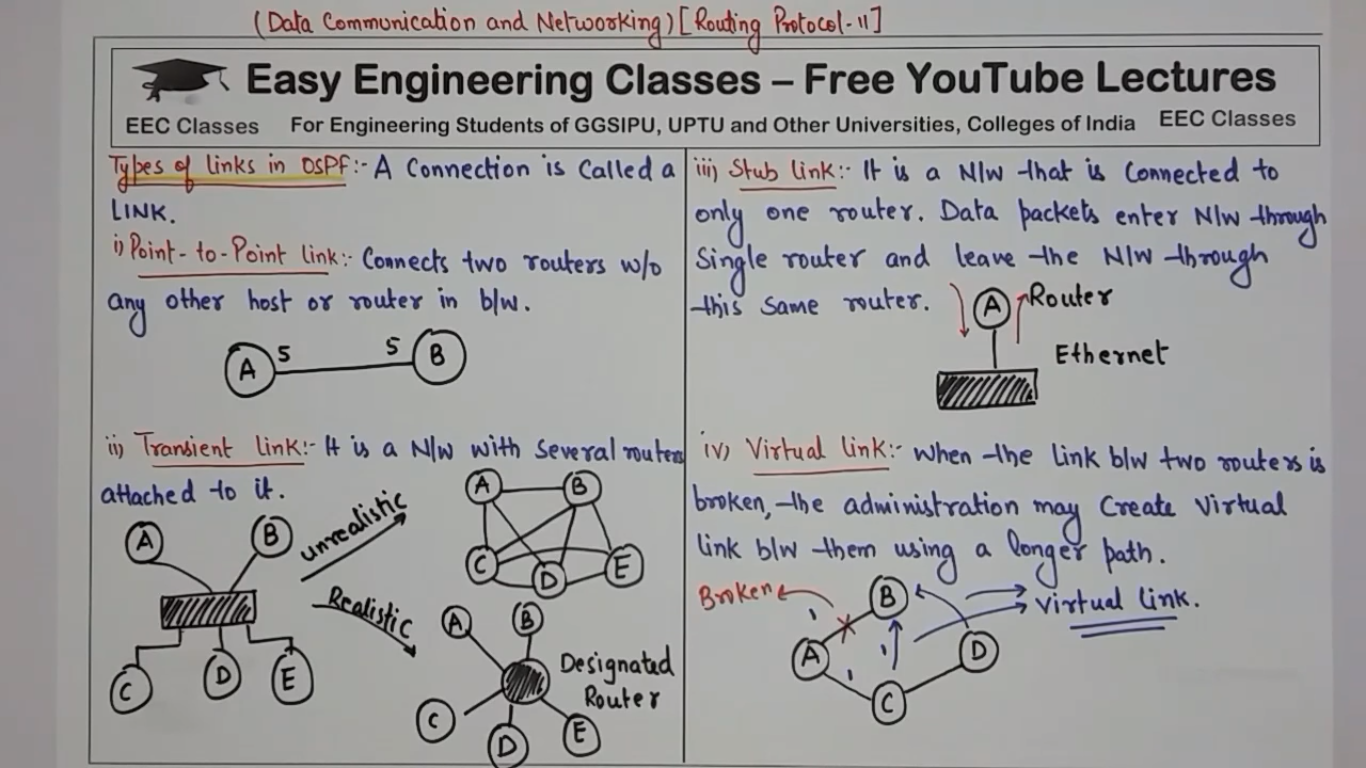 (Data Communication and Networking) [Routing Protocol-11]
Easy Engineering Classes – Free YouTube Lectures
EEC Classes For Engineering Students of GGSIPU, UPTU and Other Universities, Colleges of India EEC Classes
Types of links in OSPF:- A Connection is Called a
LINK.
i) Point-to-Point link:- Connects two routers w/o
any other host or router in b/w.
A 5 5 B
ii) Transient link:- It is a N/w with Several routers
attached to it.
A B
C D E
unrealistic
A B
C D E
Realistic
A B
Designated
Router
C D E
iii) Stub link:- It is a N/w that is Connected to
only one router. Data packets enter N/w through
Single router and leave the N/w through
this Same router.
A Router
Ethernet
iv) Virtual link:- When the link b/w two routers is
broken, the administration may Create Virtual
link b/w them using a longer path.
Broken
B
Virtual link.
A D
C